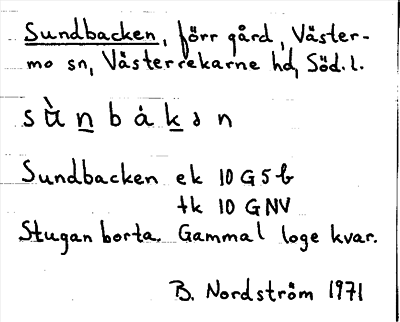 Sundbacken, förr gård, Väster-
mo sn, Västerrekarne hd, Söd.l.
sùn̲bȧk̲ən
Sundbacken ek 10 G 5 b
tk 10 G NV
Stugan borta. Gammal loge kvar.
B. Nordström 1971